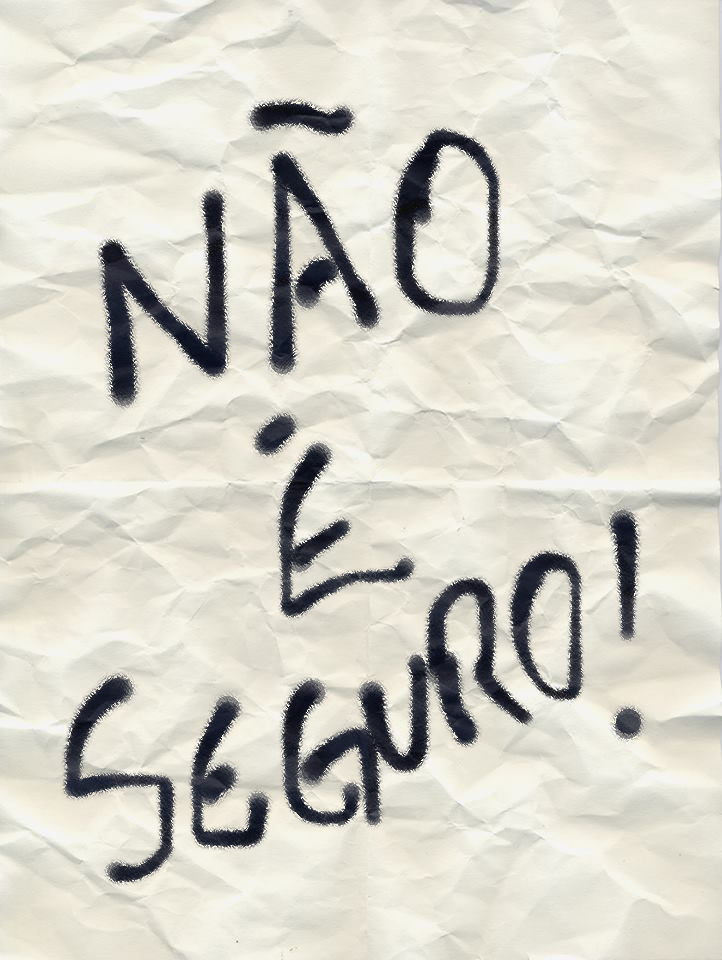 NÃO
É
SEGURO!